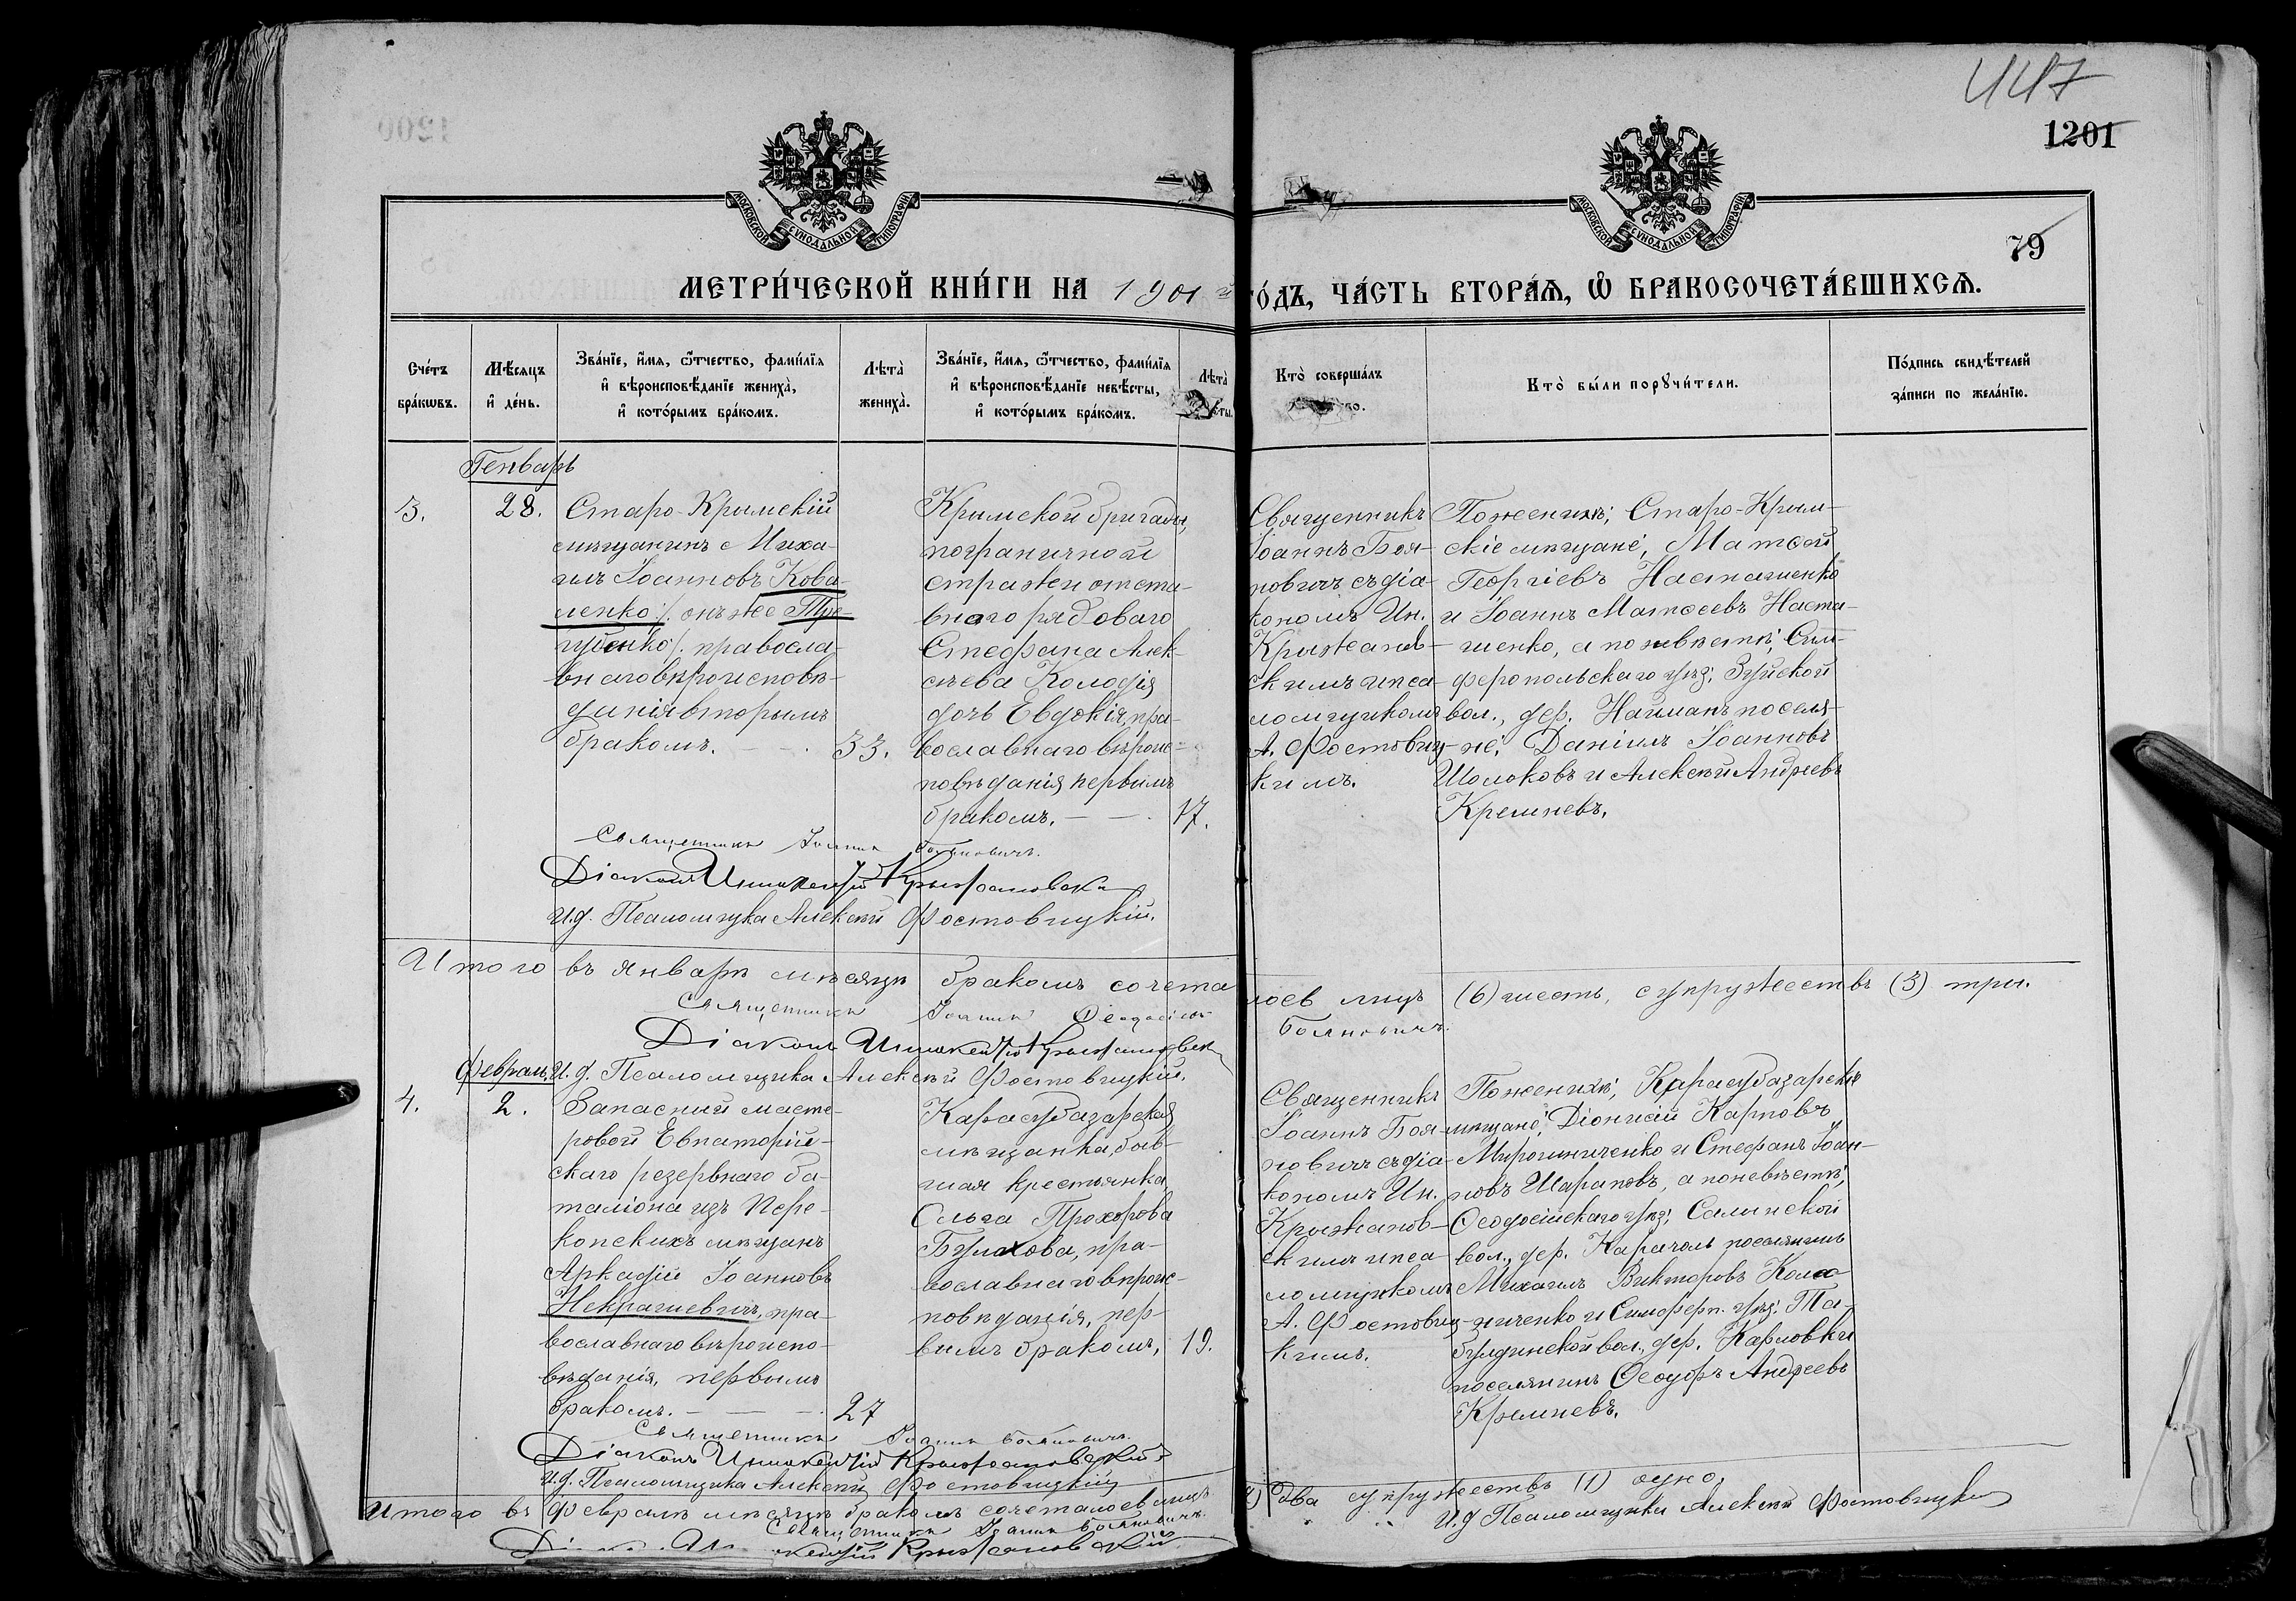 447
1201
79
МЕТРИ́ЧЕСКОЙ КНИ́ГИ НА 1901 й
ГО́ДЪ, ЧА́СТЬ ВТОРА́Ѧ, Ѽ БРАКОСОЧЕТА́ВШИХСѦ.
МОСКОВСКОЙ СУНОДАЛЬНОЙ ТИПОГРАФІИ
МОСКОВСКОЙ СУНОДАЛЬНОЙ ТИПОГРАФІИ
Сче́тъ
бра́кѡвъ.
Мѣ́сяцъ
и҆ де́нь.
Зва́нїе, и҆́мѧ, ѻ҆́тчество, фами́лїѧ
и҆ вѣроисповѣ́данїе жениха̀,
и҆ кото́рымъ бра́комъ.
Лѣта̀
жениха̀.
Зва́нїе, и҆́мѧ, ѻ҆́тчество, фами́лїѧ
и҆ вѣроисповѣ́данїе невѣ́сты,
и҆ кото́рымъ бра́комъ.
Лѣта̀
Кто̀ соверша́лъ
Кто̀ бы́ли порꙋчи́тели.
По́дпись свидѣ́телей
за́писи по жела́нїю.
Генварь
3.
28.
Старо-Крымскій
мѣщанинъ Миха-
илъ Іоанновъ Кова-
ленко /. онъ же Три-
губенко/. правосла-
внаго вѣроисповѣ-
данія вторымъ
бракомъ.
33.
Крымской бригады,
пограничной
стражи отста-
вного рядоваго
Стефана Алек-
сѣева Колодія
дочь Евдокія, пра-
вославнаго вѣроис-
повѣданія первымъ
бракомъ.
17.
Священникъ
Іоаннъ Боя-
новичъ съ діа-
кономъ Ин.
Крыжанов-
скимъ и пса-
ломщикомъ
А. Фостовиц-
кимъ.
По женихѣ: Старо-Крым-
скіе мѣщане, Матѳей
Георгіевъ Насташенко
и Іоаннъ Матѳеевъ Наста-
шенко, а по невѣстѣ: Сим-
феропольскаго уѣз: Зуйской
вол., дер. Найманъ поселя-
не: Даніилъ Іоанновъ
Шолоковъ и Алексѣй Андреевъ
Кремневъ.
Священникъ Іоаннъ Бояновичъ.
Діаконъ Иннокентій Крыжановскій
И.д. Псаломщика Алексѣй Фостовицкій.
Итого въ январѣ мѣсяцѣ бракомъ сочета
лось лицъ (6) шесть, супружествъ (3) три.
Священникъ Іоаннъ Ѳеодосіевъ
Бояновичъ.
Діаконъ Иннокентій Крыжановскій
И.д. Псаломщика Алексѣй Фостовицкій.
Февраль.
4.
2.
Запасный масте-
ровой Евпаторій-
скаго резервнаго ба-
таліона изъ Пере-
копскихъ мѣщанъ
Аркадій Іоанновъ
Некрашевичъ, пра-
вославнаго вѣроиспо-
вѣданія, первымъ
бракомъ.
27
Карасубазарская
мѣщанка, быв-
шая крестьянка,
Ольга Прохорова
Булахова, пра-
вославнаго вѣроис-
повѣданія, пер-
вымъ бракомъ,
19.
Священникъ
Іоаннъ Боя-
новичъ съ діа-
кономъ Ин.
Крыжанов-
скимъ и пса-
ломщикомъ
А. Фостовиц-
кимъ.
По женихѣ: Карасубазарскіе
мѣщане: Діонисій Карповъ
Мирошниченко и Стефанъ Іоан-
новъ Шараповъ, а по невѣстѣ:
Ѳеодосійскаго уѣз: Салынской
вол., дер. Карачоль поселянинъ
Михаилъ Викторовъ
и Симфероп. уѣз: Та-
булдинской вол., дер. Карловки
поселянинъ Ѳеодоръ Андреевъ
Кремневъ.
Священникъ Іоаннъ Бояновичъ.
Діаконъ Иннокентій Крыжановскій
И.д. Псаломщика Алексѣй Фостовицкій
Итого въ Февралѣ мѣсяцѣ бракомъ сочеталось лицъ
два супружествъ (1) одно.
Священникъ Іоаннъ Бояновичъ.
И.д Псаломщика Алексѣй Фостовицкій
Крыжановскій